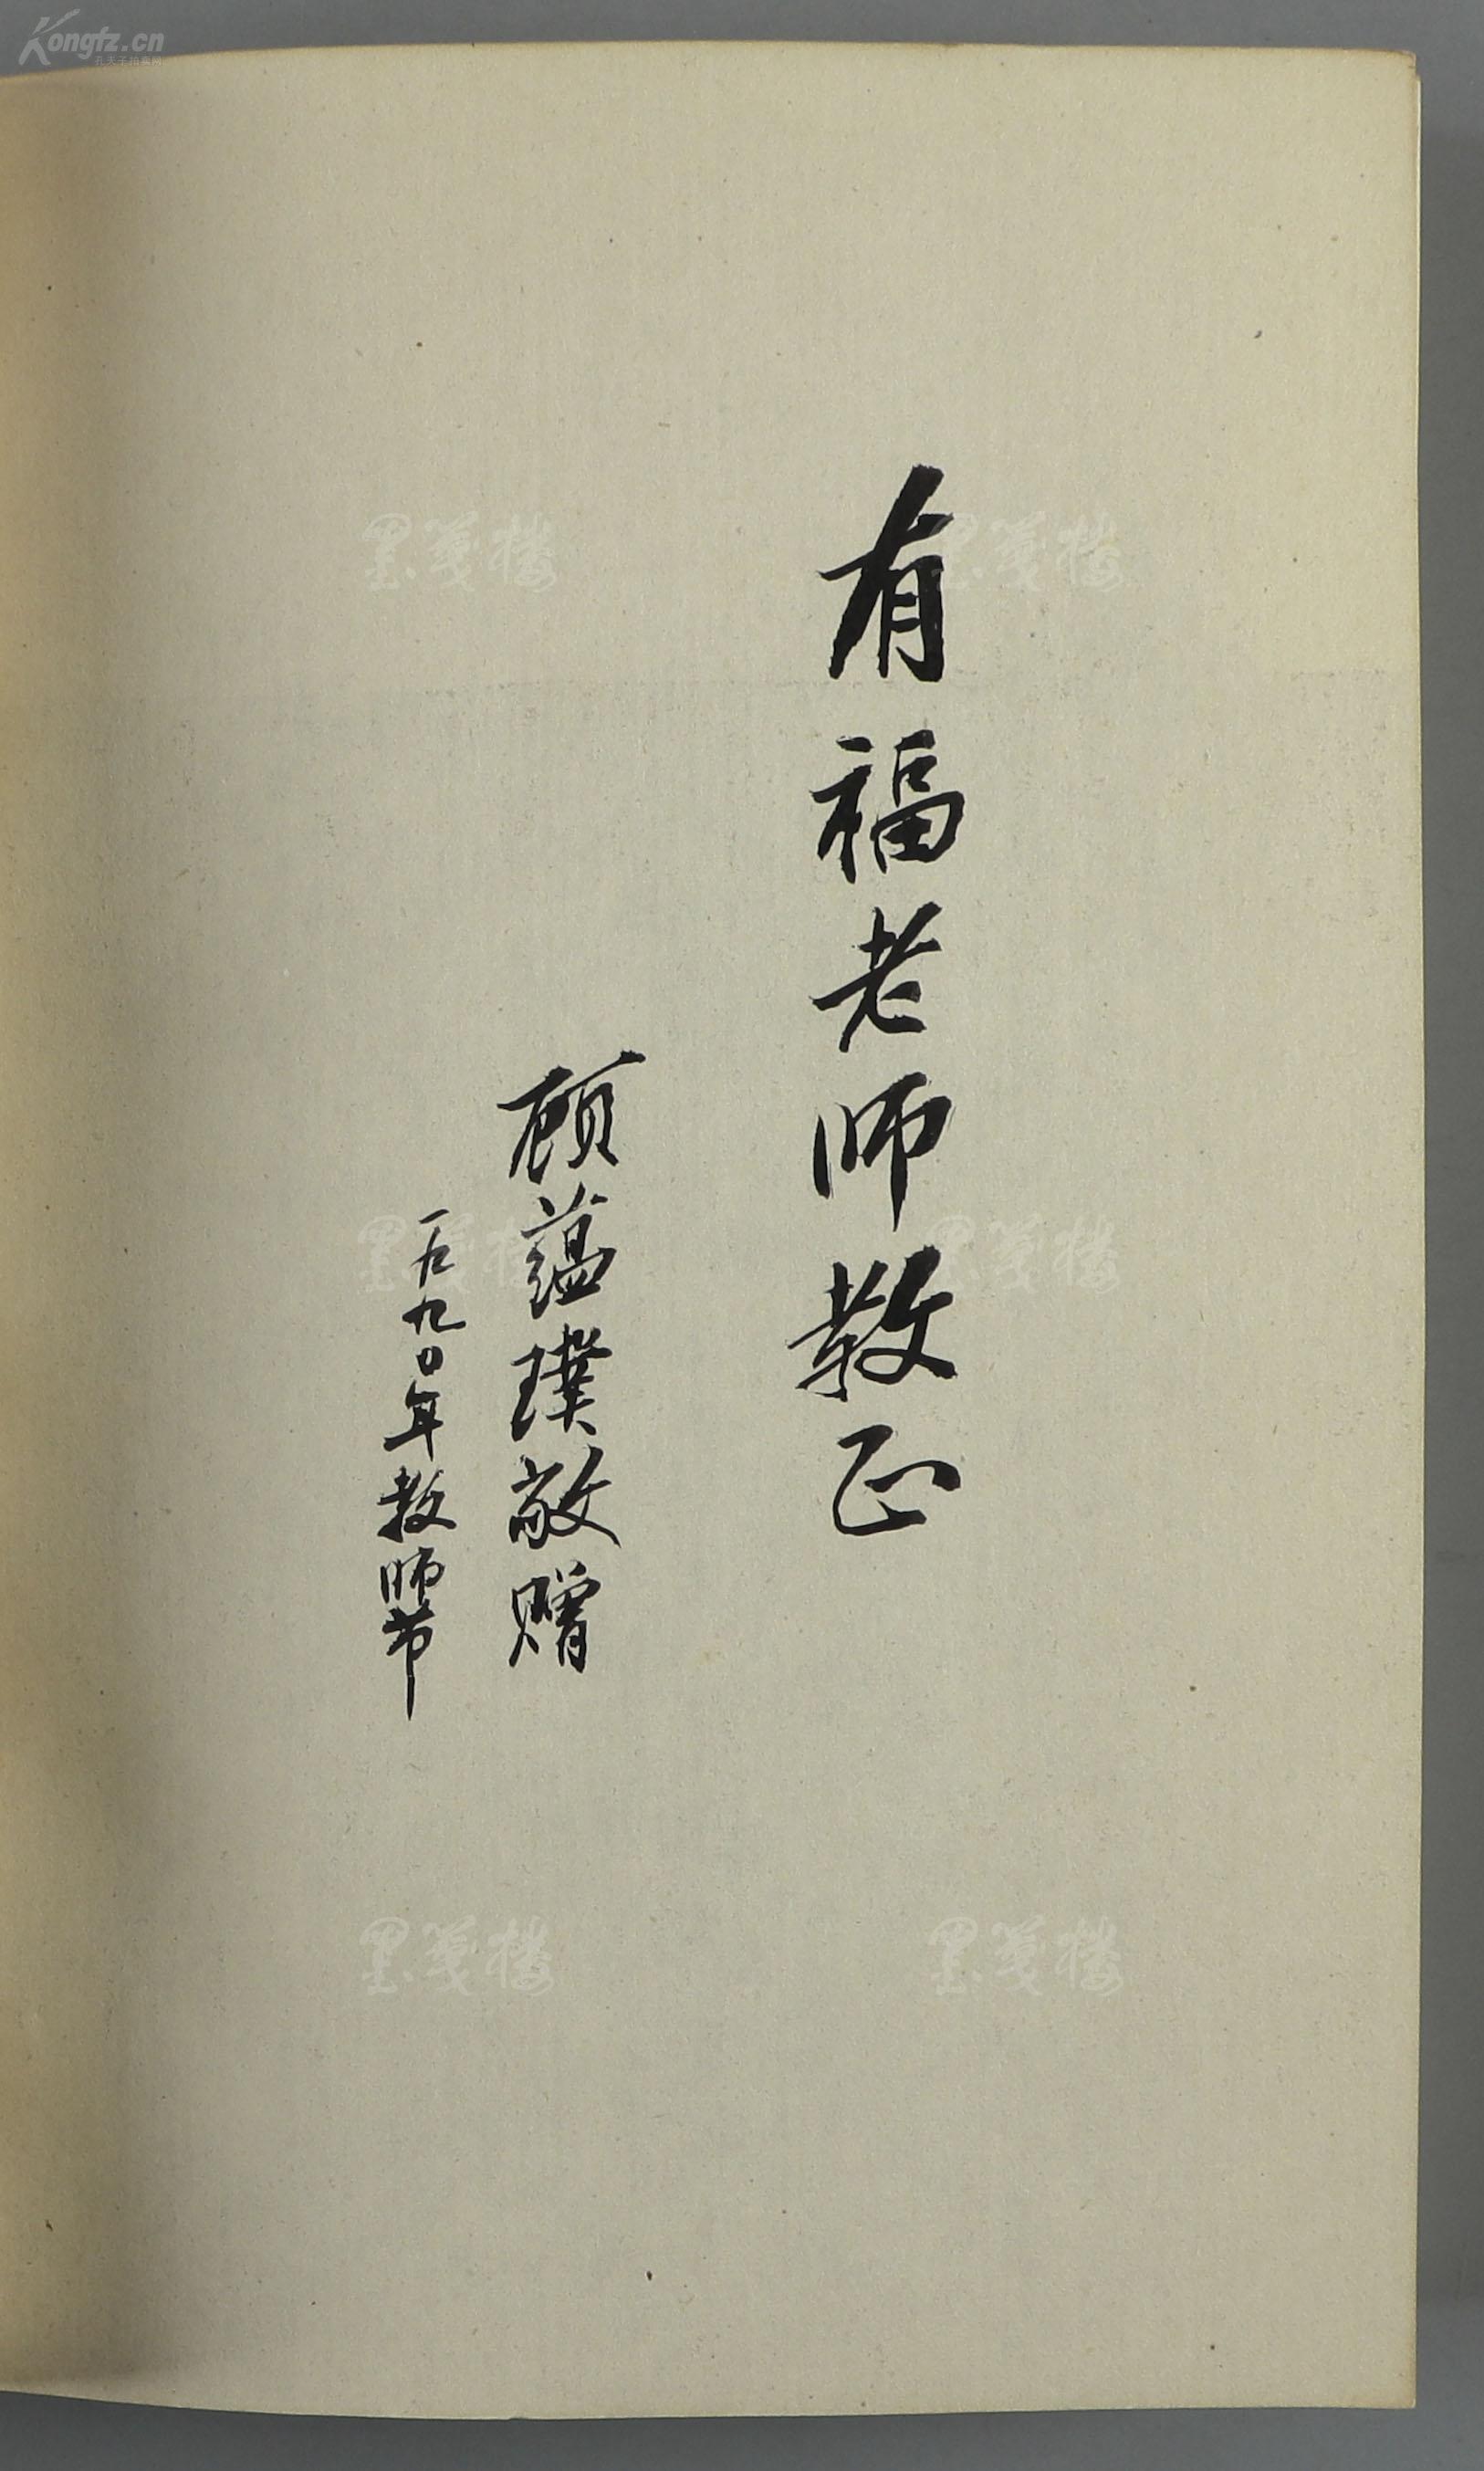 有福老师教正
顾蕴璞敬赠
一九九〇年教师节
Kongfz.cn
墨笺楼
墨笺楼
墨笺楼
墨笺楼
墨笺楼
墨笺楼